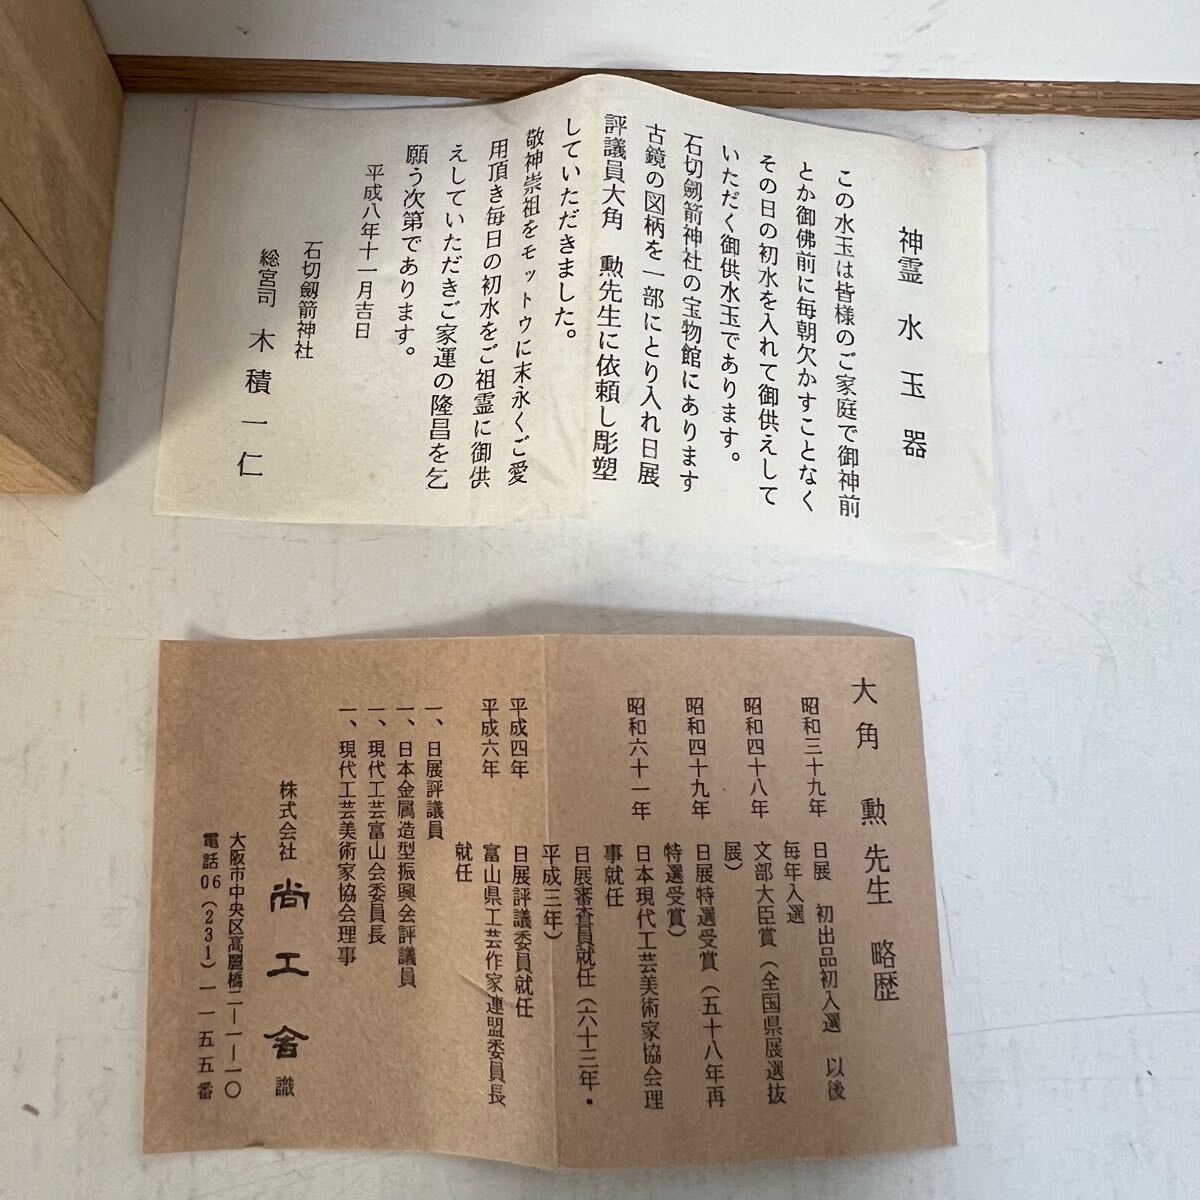 神霊水玉器
この水玉は皆様のご家庭で御神前
とか御佛前に毎朝欠かすことなく
その日の初水を入れて御供えして
いただく御供水玉であります。
石切劔箭神社の宝物館にあります
古鏡の図柄を一部にとり入れ日展
評議員大角　勲先生に依頼し彫塑
していただきました。
敬神崇祖をモットウに末永くご愛
用頂き毎日の初水をご祖霊に御供
えしていただきご家運の隆昌を乞
願う次第であります。
平成八年十一月吉日
石切劔箭神社
総宮司　木積一仁
大角　勲先生　略歴
昭和三十九年　日展　初出品初入選　以後
毎年入選
昭和四十八年　文部大臣賞（全国県展選抜
展）
昭和四十九年　日展特選受賞（五十八年再
特選受賞）
昭和六十一年　日本現代工芸美術家協会理
事就任
日展審査員就任（六十三年・
平成三年）
平成四年　日展評議委員就任
平成六年　富山県工芸作家連盟委員長
就任
一、日展評議員
一、日本金属造型振興会評議員
一、現代工芸富山会委員長
一、現代工芸美術家協会理事
株式会社　尚工舎　識
大阪市中央区高麗橋二―一―一〇
電話06（231）一一五五番